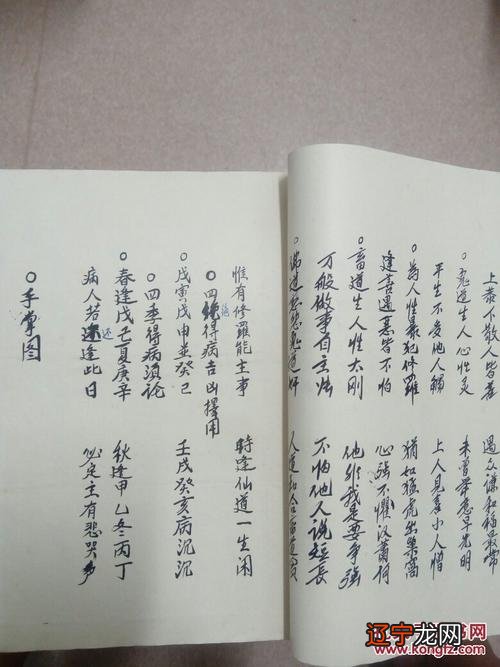 上恭下敬人皆喜 遇众谦和福最常
○鬼道生人心性灵 未曾举意早先明
平生不受他人觸 上人見喜小人憎
○为人性暴犯修羅 犹如猛虎出巢窩
逢善遇惡皆不怕 心强不懼汉蕭何
○畜道生人性太刚 他非我是要争强
万般做事自主张 不怕他人说短長
鬼道奸 人道和合畜道
惟有修羅能主事 時逢仙道一生闲
○四得病吉凶擇用
○戊寅戊申並癸巳 壬戌癸亥病沉沉
○四季得病须论
春逢戊己夏庚辛 秋逢甲乙冬丙丁
病人若还逢此日 必定主有悲哭多
○手掌图
书网
www.kongfz.com
辽宁龙网